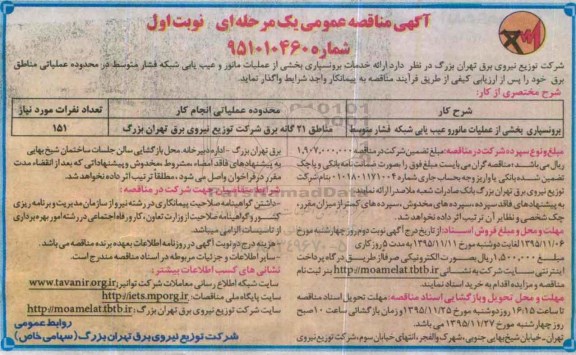 آگهی مناقصه عمومی یک مرحله ای نوبت اول
شماره ۹۵۱۰۱۰۴۶۰
شرکت توزیع نیروی برق تهران بزرگ در نظر دارد ارائه خدمات برونسپاری بخشی از عملیات مانور و عیب یابی شبکه فشار متوسط در محدوده عملیاتی مناطق
برق خود را پس از ارزیابی کیفی از طریق فرآیند مناقصه به پیمانکار واجد شرایط واگذار نماید.
شرح مختصری از کار:
شرح کار
محدوده عملیاتی انجام کار
تعداد نفرات مورد نیاز
برونسپاری بخشی از عملیات مانور و عیب یابی شبکه فشار متوسط
مناطق ۲۱ گانه برق شرکت توزیع نیروی برق تهران بزرگ
۱۵۱
مبلغ و نوع سپرده شرکت در مناقصه: مبلغ تضمین شرکت در مناقصه ۱,۹۰۷,۰۰۰,۰۰۰
ریال می باشد. مناقصه گران می بایست مبلغ فوق را بصورت ضمانت نامه بانکی و یا چک
تضمین شده بانکی یا واریز وجه بحساب جاری ۰۱۰۱۸۰۱۱۷۱۰۰۴ بنام شرکت
توزیع نیروی برق تهران بزرگ بانک صادرات شعبه ملاصدرا ارائه نمایند
به پیشنهادهای فاقد سپرده، سپرده های مخدوش، سپرده های کمتر از میزان مقرر،
چک شخصی و نظایر آن ترتیب اثر داده نخواهد شد.
مهلت و محل و مبلغ فروش اسناد: از تاریخ درج آگهی نوبت دوم روز چهارشنبه مورخ
۱۳۹۵/۱۱/۰۶ لغایت دوشنبه مورخ ۱۳۹۵/۱۱/۱۱ به مدت ۵ روز کاری
مبلغ ۱,۵۰۰,۰۰۰ ریال بصورت الکترونیکی صرفاً از طریق درگاه پرداخت
اینترنتی سایت شرکت به نشانی http://moamelat.tbtb.ir بنر ثبت نام
مناقصه و مزایده اقدام به خرید اسناد نمایند.
مهلت و محل تحویل و بازگشایی اسناد مناقصه: مهلت تحویل اسناد مناقصه
تا ساعت ۱۶:۱۵ روز دوشنبه مورخ ۱۳۹۵/۱۱/۲۵ و زمان بازگشائی ساعت ۱۰ صبح
روز چهارشنبه مورخ ۱۳۹۵/۱۱/۲۷ می باشد.
تهران - خیابان شیخ بهایی جنوبی - شهرک والفجر - انتهای خیابان سوم - شرکت توزیع نیروی
برق تهران بزرگ - اداره دبیرخانه محل بازگشایی سالن جلسات ساختمان شیخ بهایی
به پیشنهادهای فاقد امضاء، مشروط، مخدوش و پیشنهاداتی که بعد از انقضاء مدت
مقرر در فراخوان واصل می شود، مطلقاً ترتیب اثر داده نخواهد شد.
شرایط متقاضی جهت شرکت در مناقصه:
- داشتن گواهینامه صلاحیت پیمانکاری در رشته نیرو از سازمان مدیریت و برنامه ریزی
کشور و گواهینامه صلاحیت از وزارت تعاون، کار و رفاه اجتماعی در رشته امور بهره برداری
از تاسیسات الزامی میباشد.
- هزینه درج دو نوبت آگهی در روزنامه ها بعهده برنده مناقصه می باشد.
- سایر اطلاعات و جزئیات مربوطه در اسناد مناقصه مندرج است.
نشانی های کسب اطلاعات بیشتر:
سایت شبکه اطلاع رسانی معاملات شرکت توانیر: www.tavanir.org.ir
سایت پایگاه ملی مناقصات: http://iets.mporg.ir
سایت شرکت توزیع نیروی برق تهران بزرگ: http://moamelat.tbtb.ir
روابط عمومی
شرکت توزیع نیروی برق تهران بزرگ (سهامی خاص)